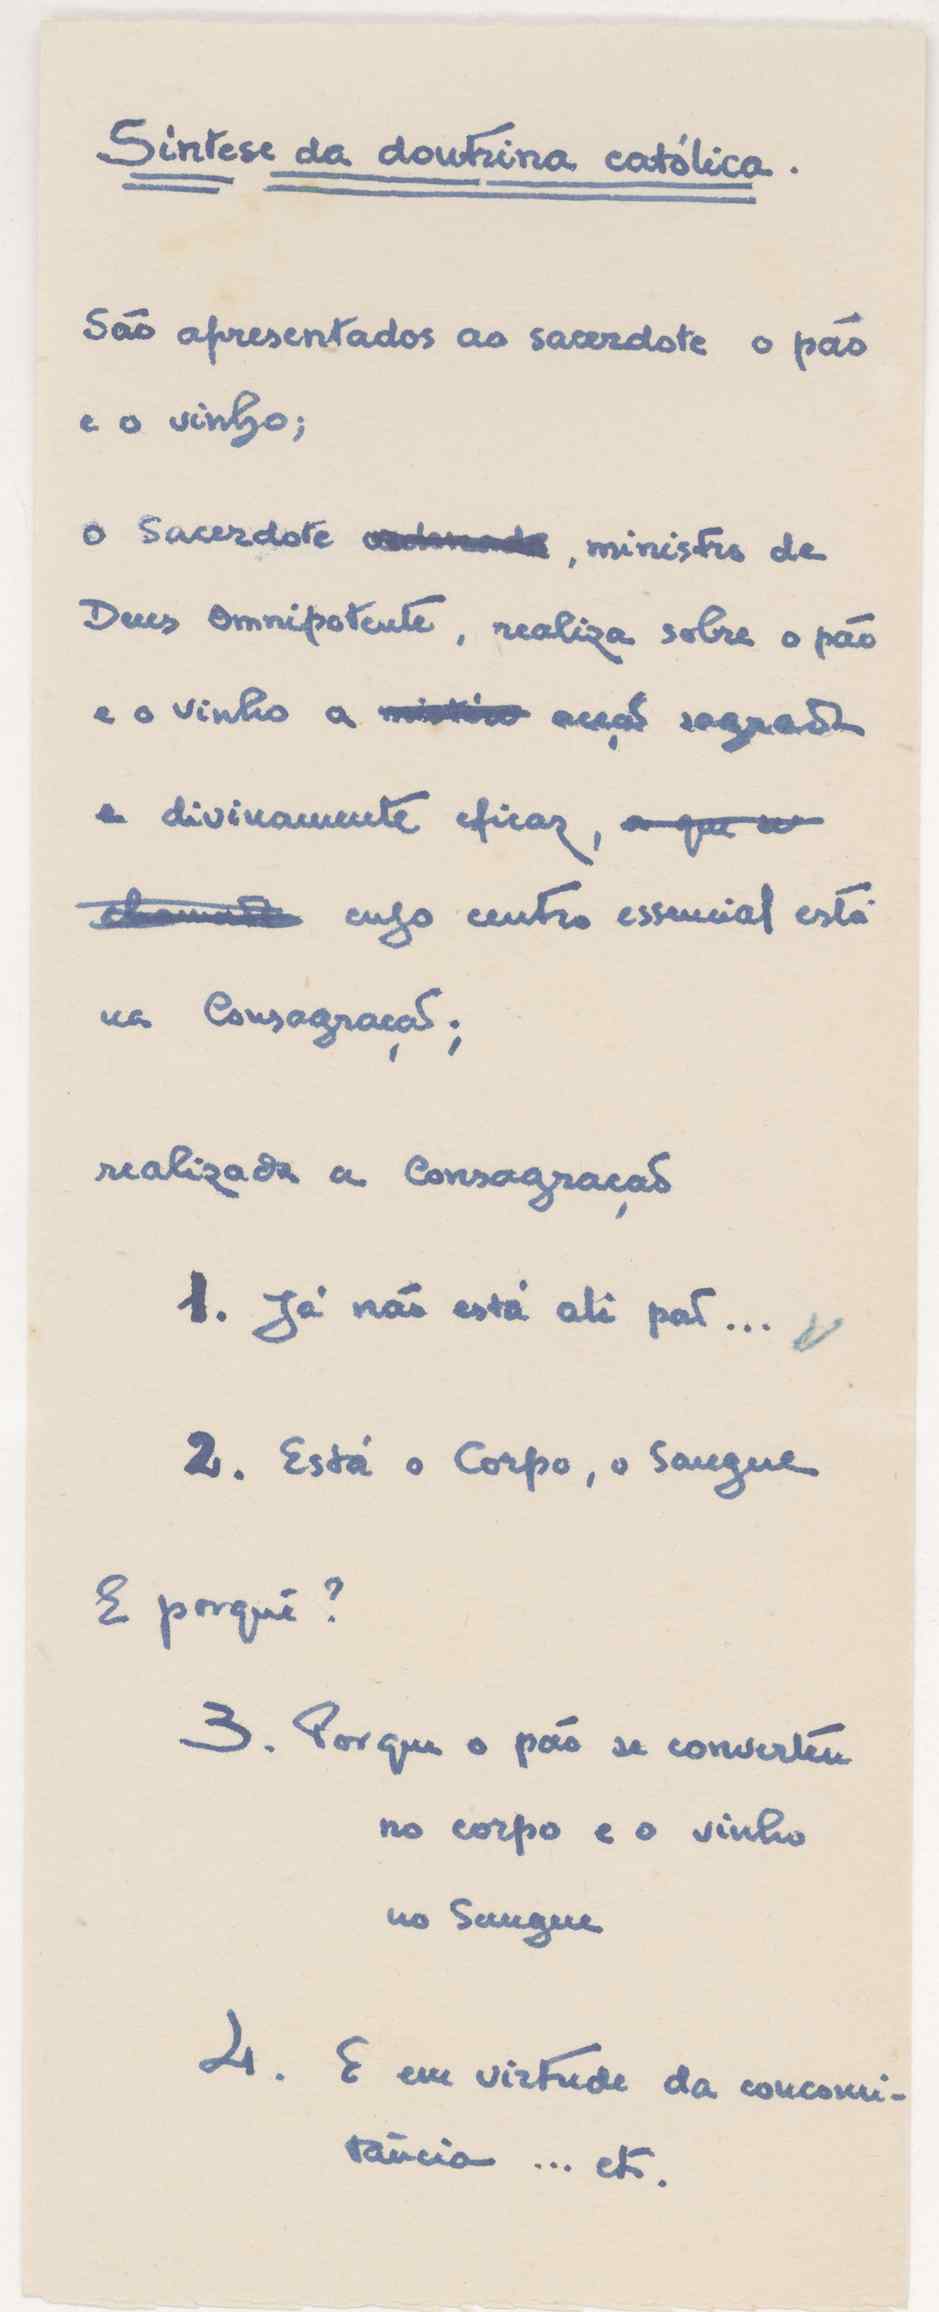 Síntese da doutrina católica.
São apresentados ao sacerdote o pão
e o vinho;
o Sacerdote ordenado, ministro de
Deus Omnipotente, realiza sobre o pão
e o vinho a acção sagrada
e divinamente eficaz, a que se
chamada cujo centro essencial está
na Consagração;
realizada a Consagração
1. Já não está ali pão...
2. Está o Corpo, o Sangue
E porquê?
3. Porque o pão se converteu
no corpo e o vinho
no Sangue
4. E em virtude da concomi-
tância ... etc.